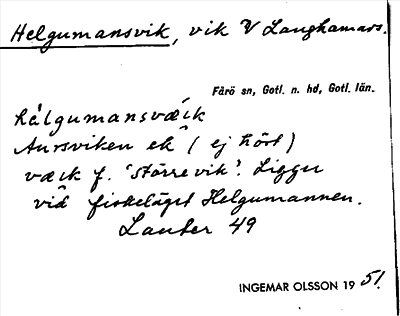 Helgumansvik, vik V Langhamars.
Fårö sn, Gotl. n. hd, Gotl. län.
hålgumansvæik
Aursviken ek (ej hört)
væik f. 'större vik'. Ligger
vid fiskeläget Helgumannen.
Lauter 49
INGEMAR OLSSON 19 51.